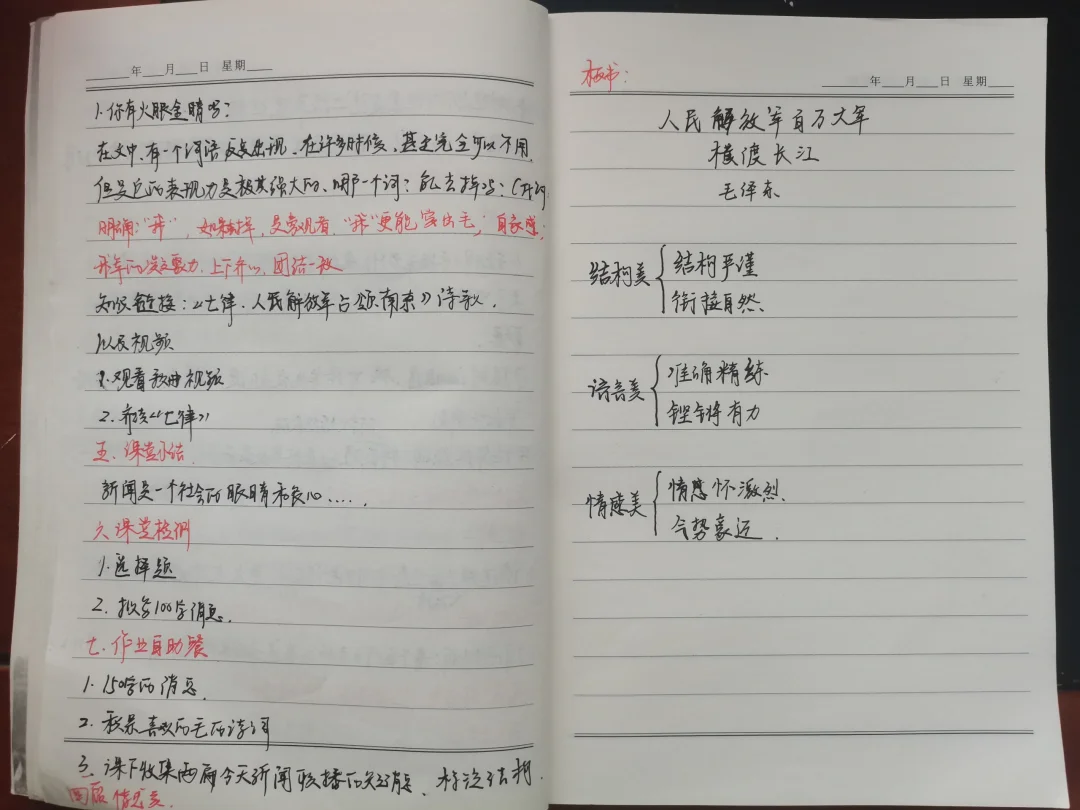 年 月 日 星期
1. 你有火眼金睛吗?
在文中,有一个词语反复出现、在许多时候、甚至完全可以不用,
但是它的表现力是极其强大的、哪一个词? 能去掉吗?
明确:“我”,如果去掉,是客观看,“我”更能写出毛 自豪感;
我军的凝聚力,上下齐心,团结一致
知识链接:《七律·人民解放军占领南京》诗歌.
以及视频
1. 观看歌曲视频
2. 齐读《七律》
五、课堂小结
新闻是一个社会的眼睛和良心....
六、课堂检测
1. 选择题
2. 拟写100字消息.
七、作业自助餐
1. 150字的消息.
2. 我最喜欢的毛的诗词
3. 课下收集两篇今天新闻联播的 消息、标注结构.
回扣情感美.
板书:
年 月 日 星期
人民解放军百万大军
横渡长江
毛泽东
结构美 { 结构严谨
衔接自然.
语言美 { 准确精练
铿锵有力
情感美 { 情感怀激烈.
气势豪迈.